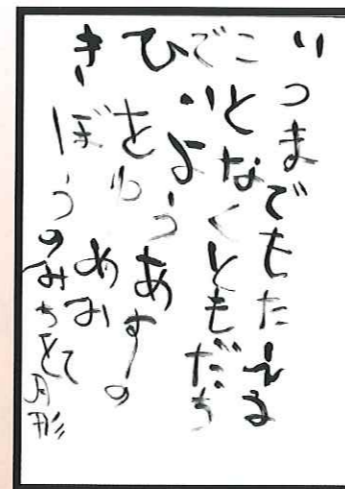 いつまでもたえる
ことなくともだち
でいようあすの
ひをゆめみ
きぼうのみちをて
月形